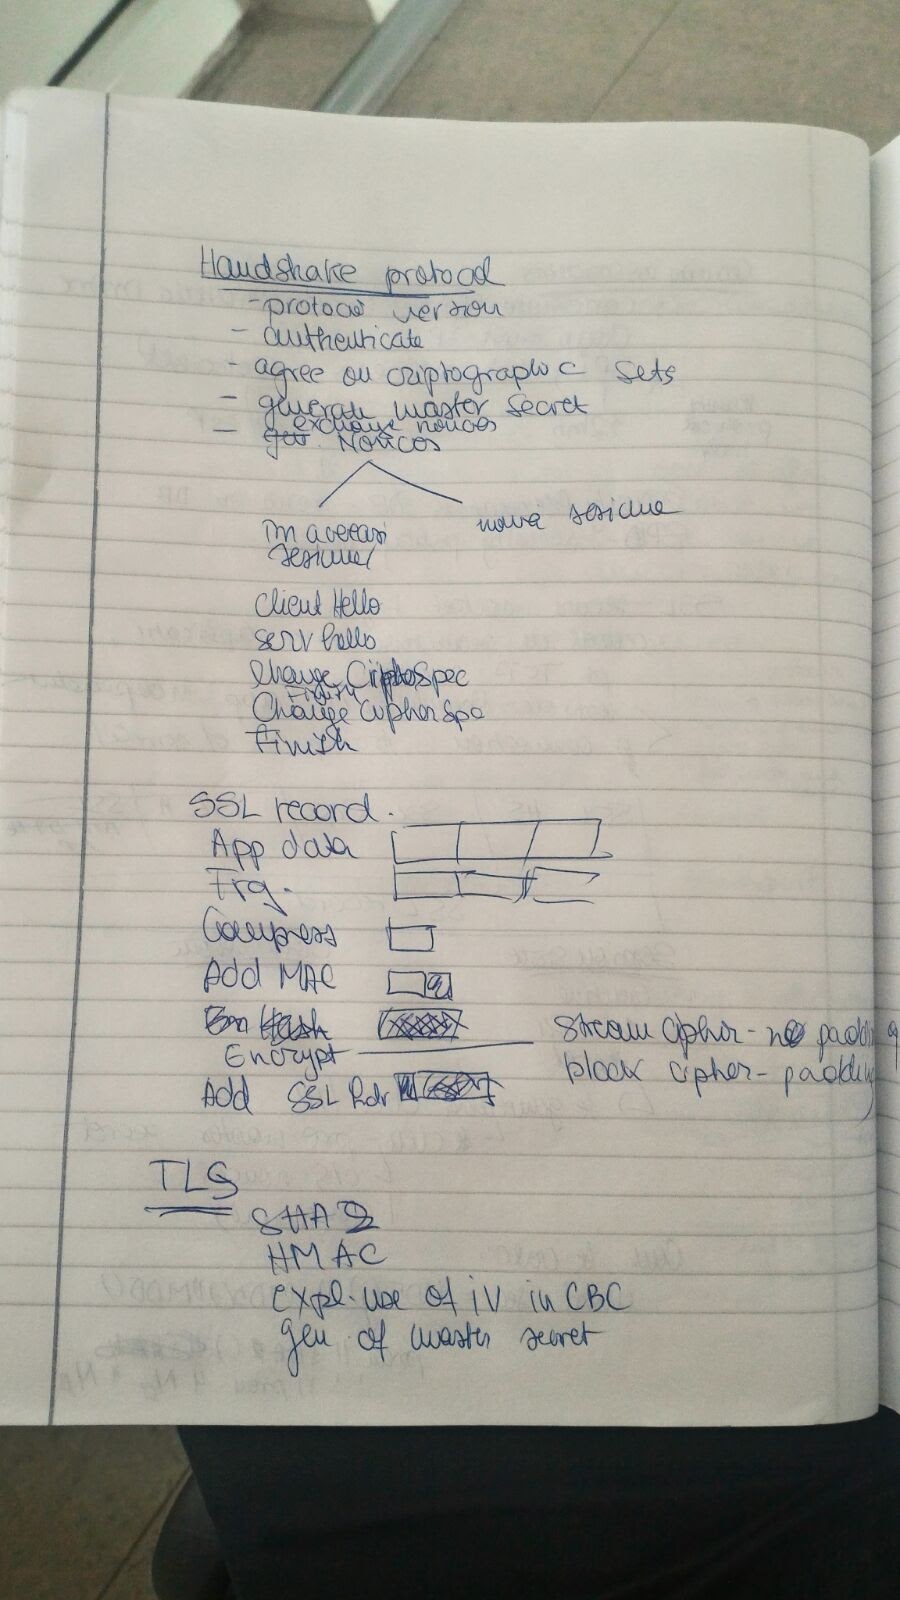 Handshake protocol
- protocol version
- authenticate
- agree on criptographic sets
- generate master secret
exchange nonces
- gen. Nonces
în aceeași
sesiune
noua sesiune
Client Hello
serv hello
Change CiphoSpec
Finish
Change CipherSpe
Finish
SSL record.
App data
Frg.
Compress
Add MAC
Hash
Encrypt
stream cipher - no padding
block cipher - padding
Add SSL hdr
TLS
SHA 2
HMAC
expl. use of iV in CBC
gen. of master secret